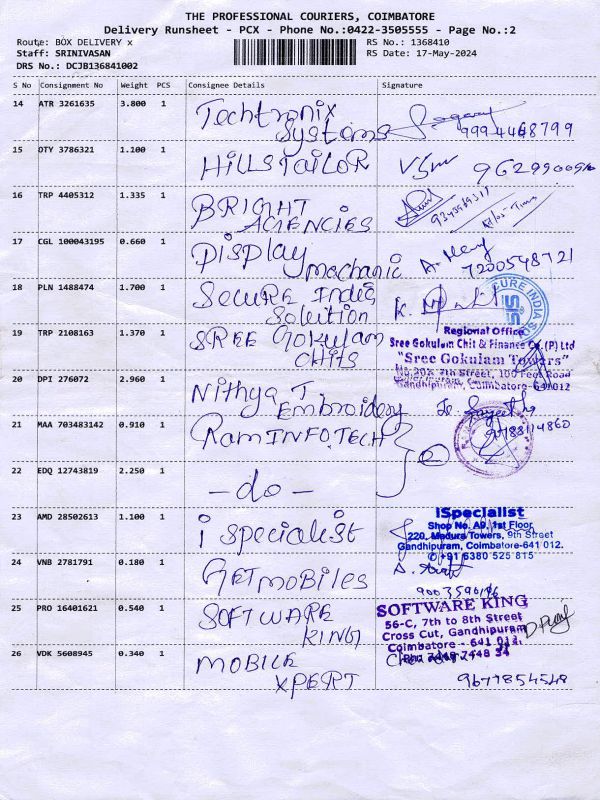 THE PROFESSIONAL COURIERS, COIMBATORE
Delivery Runsheet - PCX - Phone No.:0422-3505555 - Page No.:2
Route: BOX DELIVERY x
RS No.: 1368410
Staff: SRINIVASAN
RS Date: 17-May-2024
DRS No.: DCJB136841002
S No Consignment No Weight PCS Consignee Details Signature
14 ATR 3261635 3.800 1 Techtronix Systems 9994468799
15 OTY 3786321 1.100 1 HILLS TAILOR
16 TRP 4405312 1.335 1 BRIGHT AGENCIES
17 CGL 100043195 0.660 1 Display mechanic 7200548721
18 PLN 1488474 1.700 1 Secure India Solution
19 TRP 2108163 1.370 1 SREE Gokulam CHITS
Regional Office
Sree Gokulam Chit & Finance Co.(P) Ltd
"Sree Gokulam Towers"
7th Street, 100 Feet Road
Gandhipuram, Coimbatore-641012
20 DPI 276072 2.960 1 Nithya T. Embroidery
21 MAA 703483142 0.910 1 Ram INFOTECH
22 EDQ 12743819 2.250 1 - do -
23 AMD 28502613 1.100 1 i specialist
iSpecialist
Shop No. A9, 1st Floor,
220, Madura Towers, 9th Street
Gandhipuram, Coimbatore-641 012.
+91 6380 525 815
24 VNB 2781791 0.180 1 GETMOBILES
25 PRO 16401621 0.540 1 SOFTWARE KING
SOFTWARE KING
56-C, 7th to 8th Street
Cross Cut, Gandhipuram
Coimbatore - 641 012.
26 VDK 5608945 0.340 1 MOBILE XPERT
9677854548